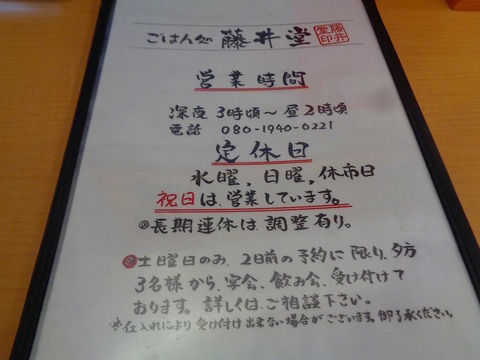 ごはん処 藤井堂 藤井堂印
営業時間
深夜3時頃〜昼2時頃
電話 080-1940-0221
定休日
水曜,日曜,休市日
祝日は営業しています。
◎長期連休は調整有り。
◎土曜日のみ、2日前の予約に限り、夕方
3名様から、宴会、飲み会、受け付けて
おります。詳しくは、ご相談下さい。
※仕入れにより受け付け出来ない場合がございます。御了承ください。